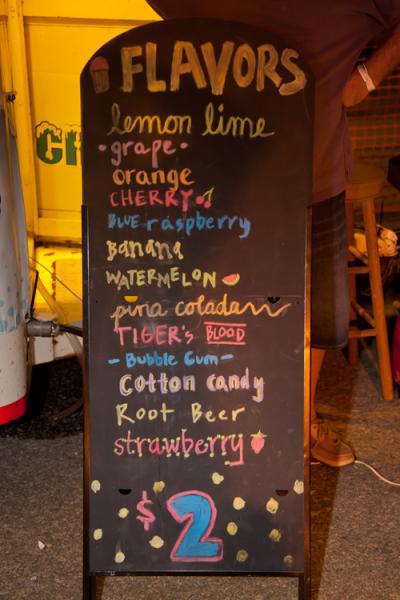 FLAVORS
lemon lime
•grape•
orange
CHERRY
BLUE raspberry
Banana
WATERMELON
pina colada
TIGER'S BLOOD
-Bubble Gum-
cotton candy
Root Beer
strawberry
$2